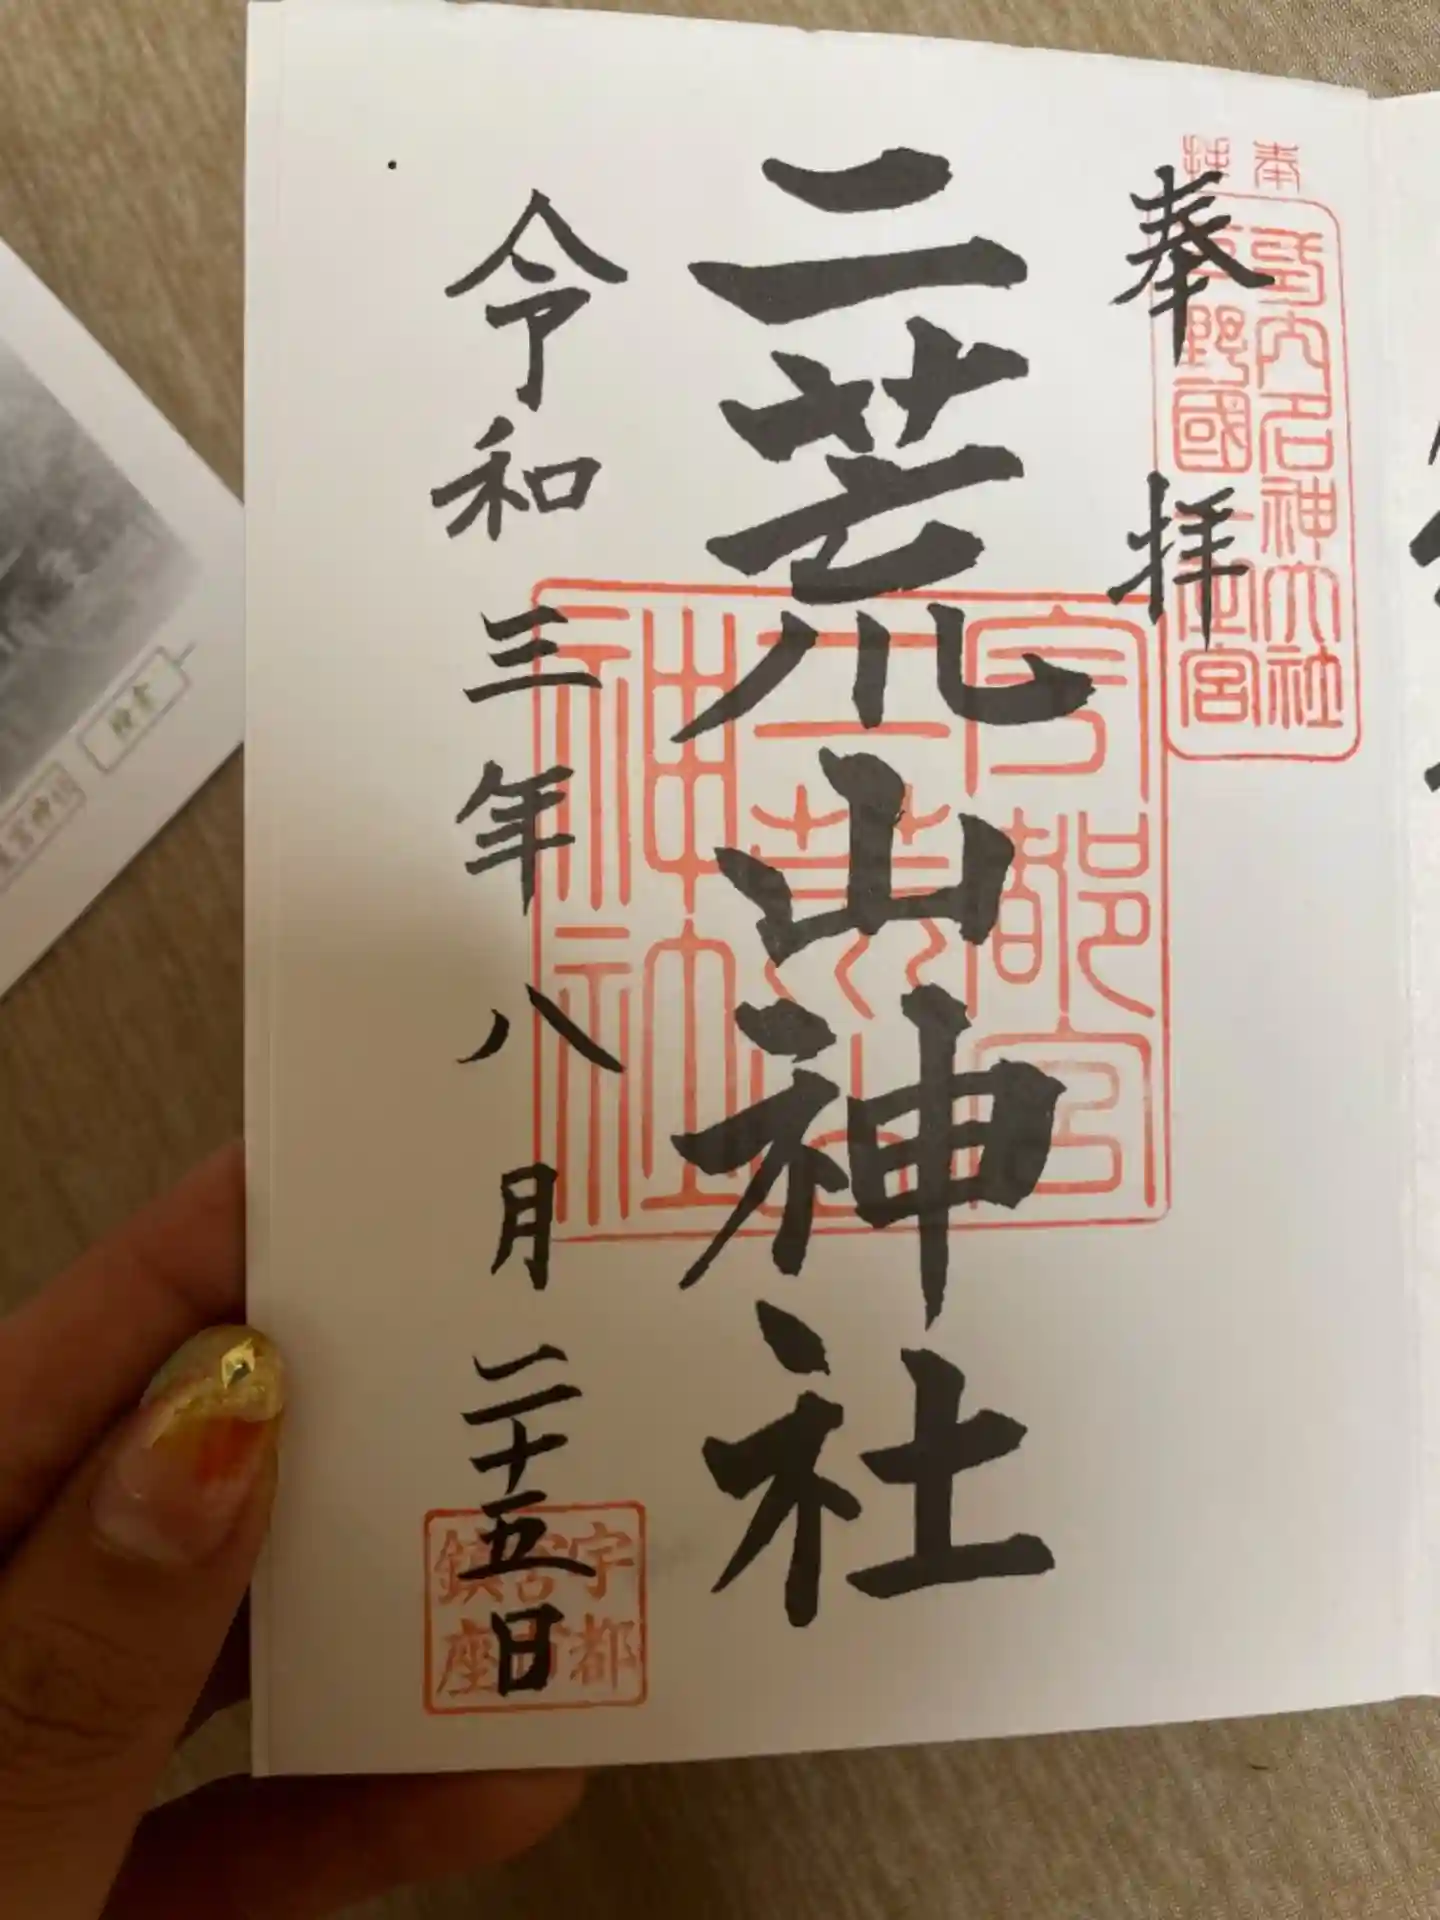 奉拝
二荒山神社
令和三年八月二十五日
延内名神大社
下野國一之宮
宇都宮
二荒山
神社
宇都宮市鎮座